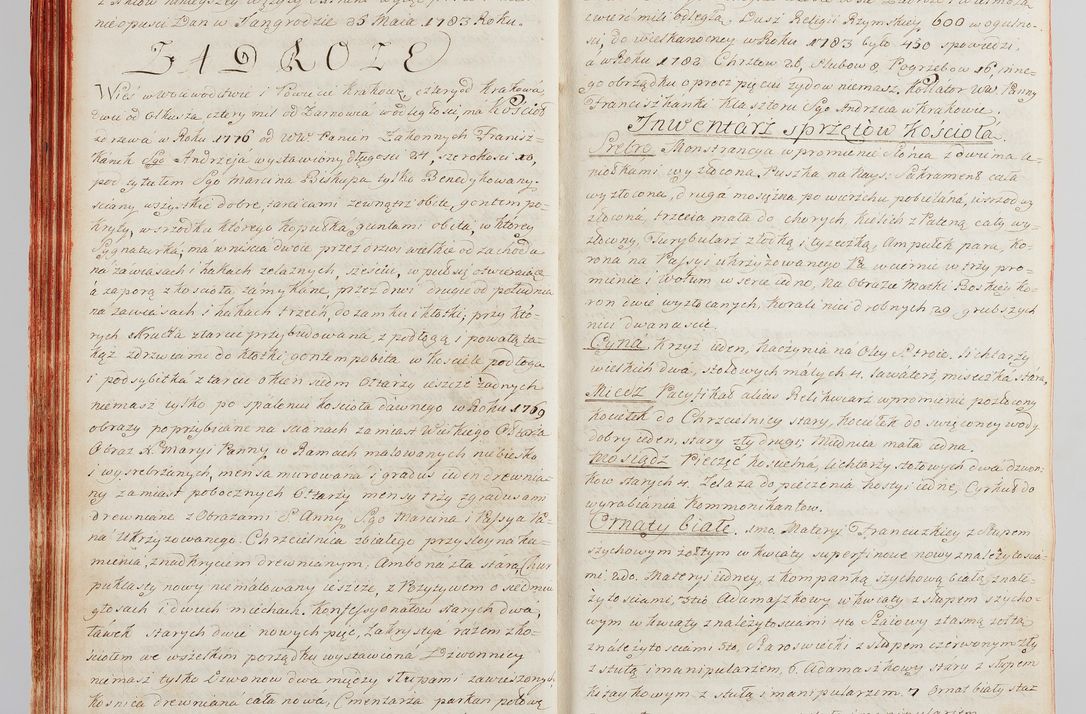 nieopuści Dan w Tangrodzie 35 Maia 1783 Roku.
ZADROZE
Wieś w Woiewodztwie i Powiecie Krakowz cztery od Krakowa
dwie od Olkusza cztery mil od Zarnowca w odległości, ma Kościoł
ze rawa w Roku 1776 od WW. Panien Zakonnych Francisz-
kanek Sgo Andrzeja wystawiony długosci 24, szerokosci 18,
pod tytułem Sgo Marcina Biskupa tylko Benedykowany.
sciany wszystkie dobre, tarcicami zewnątrz obite, gontem po-
kryty, w srzodku którego kopułka guntami obita, w ktorey
Sygnaturka, ma wniścia dwoie przez drzwi wielkie od zachodu
na zawiasach i hakach zelaznych, sześciu, w puł się otwieraią
á zaporą z koscioła zamykane, przez drzwi drugie od południa
na zawiasach i hakach trzech, do zamku i kłotki; przy któ-
rych Kruchta z tarcic przybudowana z podłogą i powałą ta-
kąż z drzwiami do kłotki, gontem pobita w kosciele podłoga
i podsybitka z tarcic okien siedm Ołtarzy ieszcze żadnych
niemasz tylko po spaleniu koscioła dawnego w Roku 1769
obrazy poprzybiiane na scianach zamiast Wielkiego Ołtarza
Obraz N. Maryi Panny w Ramach malowanych niebiesko
i wysrebrzanych, mensa murowana i gradus ieden drewnia-
ny zamiast pobocznych Ołtarzy mensy trzy z gradusami
drewniane z Obrazami S. Anny Sgo Marcina i Passyą Pa-
na Ukrzyzowanego. Chrzcielnica z białego przystoyna ka-
mienia, z nadkryciem drewnianym; Ambona zła stara, Chur
pukłasty nowy niemalowany ieszcze, z Pozytywem o siedmiu
głosach i dwuch miechach. Konfessyonałow starych dwa,
ławek starych dwie nowych pięć, Zakrystya razem z ko-
sciołem we wszelkim porządku wystawiona Dzwonnicy
niemasz tylko Dzwonow dwa między słupami zawieszonych
kosnica drewniana cała nowa, Cmentarza parkan połowę
600 w ogulno-
sci, do wielkanocney w Roku 1783 było 450 spowiedzi,
a w Roku 1782 Chrztow 26, slubow 8, Pogrzebow 16, inne-
go obrządku oprocz pięciu żydow niemasz, Kollator WW. Panny
Franciszkanki klasztoru Sgo Andrzeia w Krakowie.
Inwentarz sprzętow Koscioła
Srebro Monstrancya w promienie słońca z dwiema a-
niołkami wyzłacana, Puszka na Nays: Sakrament cała
wyzłocona, druga mosiężna po wierzchu pobielana, w srzodku
złocona, trzecia mała do chorych, kielich z Pateną cały wy-
złocony, Turybularz z łotką i łyzeczką, Ampułek para, ko-
rona na Passyi ukrzyżowanego Pa w ciernie w trzy pro-
mienie i Wotum w serce iedno, na Obrazie Matki Boskiey ko-
ron dwie wyzłacanych, korali nici drobnych 29 grubszych
nici dwanascie.
Cyna. krzyż ieden, Naczynia na Oley S. troie, lichtarzy
wielkich dwa, stołowych małych 4. lawaterz, miseczka stara
Miedz Pacyfikał alias Relikwiarz w promienie pozłacany
kociełek do Chrzcielnicy stary, kociełek do swięconey wody
dobry ieden, stary zły drugi; Miednica mała iedna.
Mosiądz Pieczęć koscielna, lichtarzy stołowych dwa dzwon-
kow starych 4. Zelaza do pieczenia hostyi iedne, Cyrkuł do
wyrabiania kommonikantow.
Ornaty białe. 1mo. Materyi Francuzkiey z słupem
szychowym żołtym w kwiaty superfinowe nowy z należytoscia-
mi. 2do. Materyi iedney, z kompanką szychową białą, z nale-
żytosciami, 3tio Adamaszkowy w kwiaty z słupem szycho-
wym w kwiaty z należytosciami 4to Ptaiowy z tasmą żołtą
z należytosciami 5to, Staroswiecki z słupem czerwonym zły
z stułą i manipularzem, 6. Adamaszkowy stary z słupem
kozaykowym z stułą i manipularzem. 7 Ornat biały staz